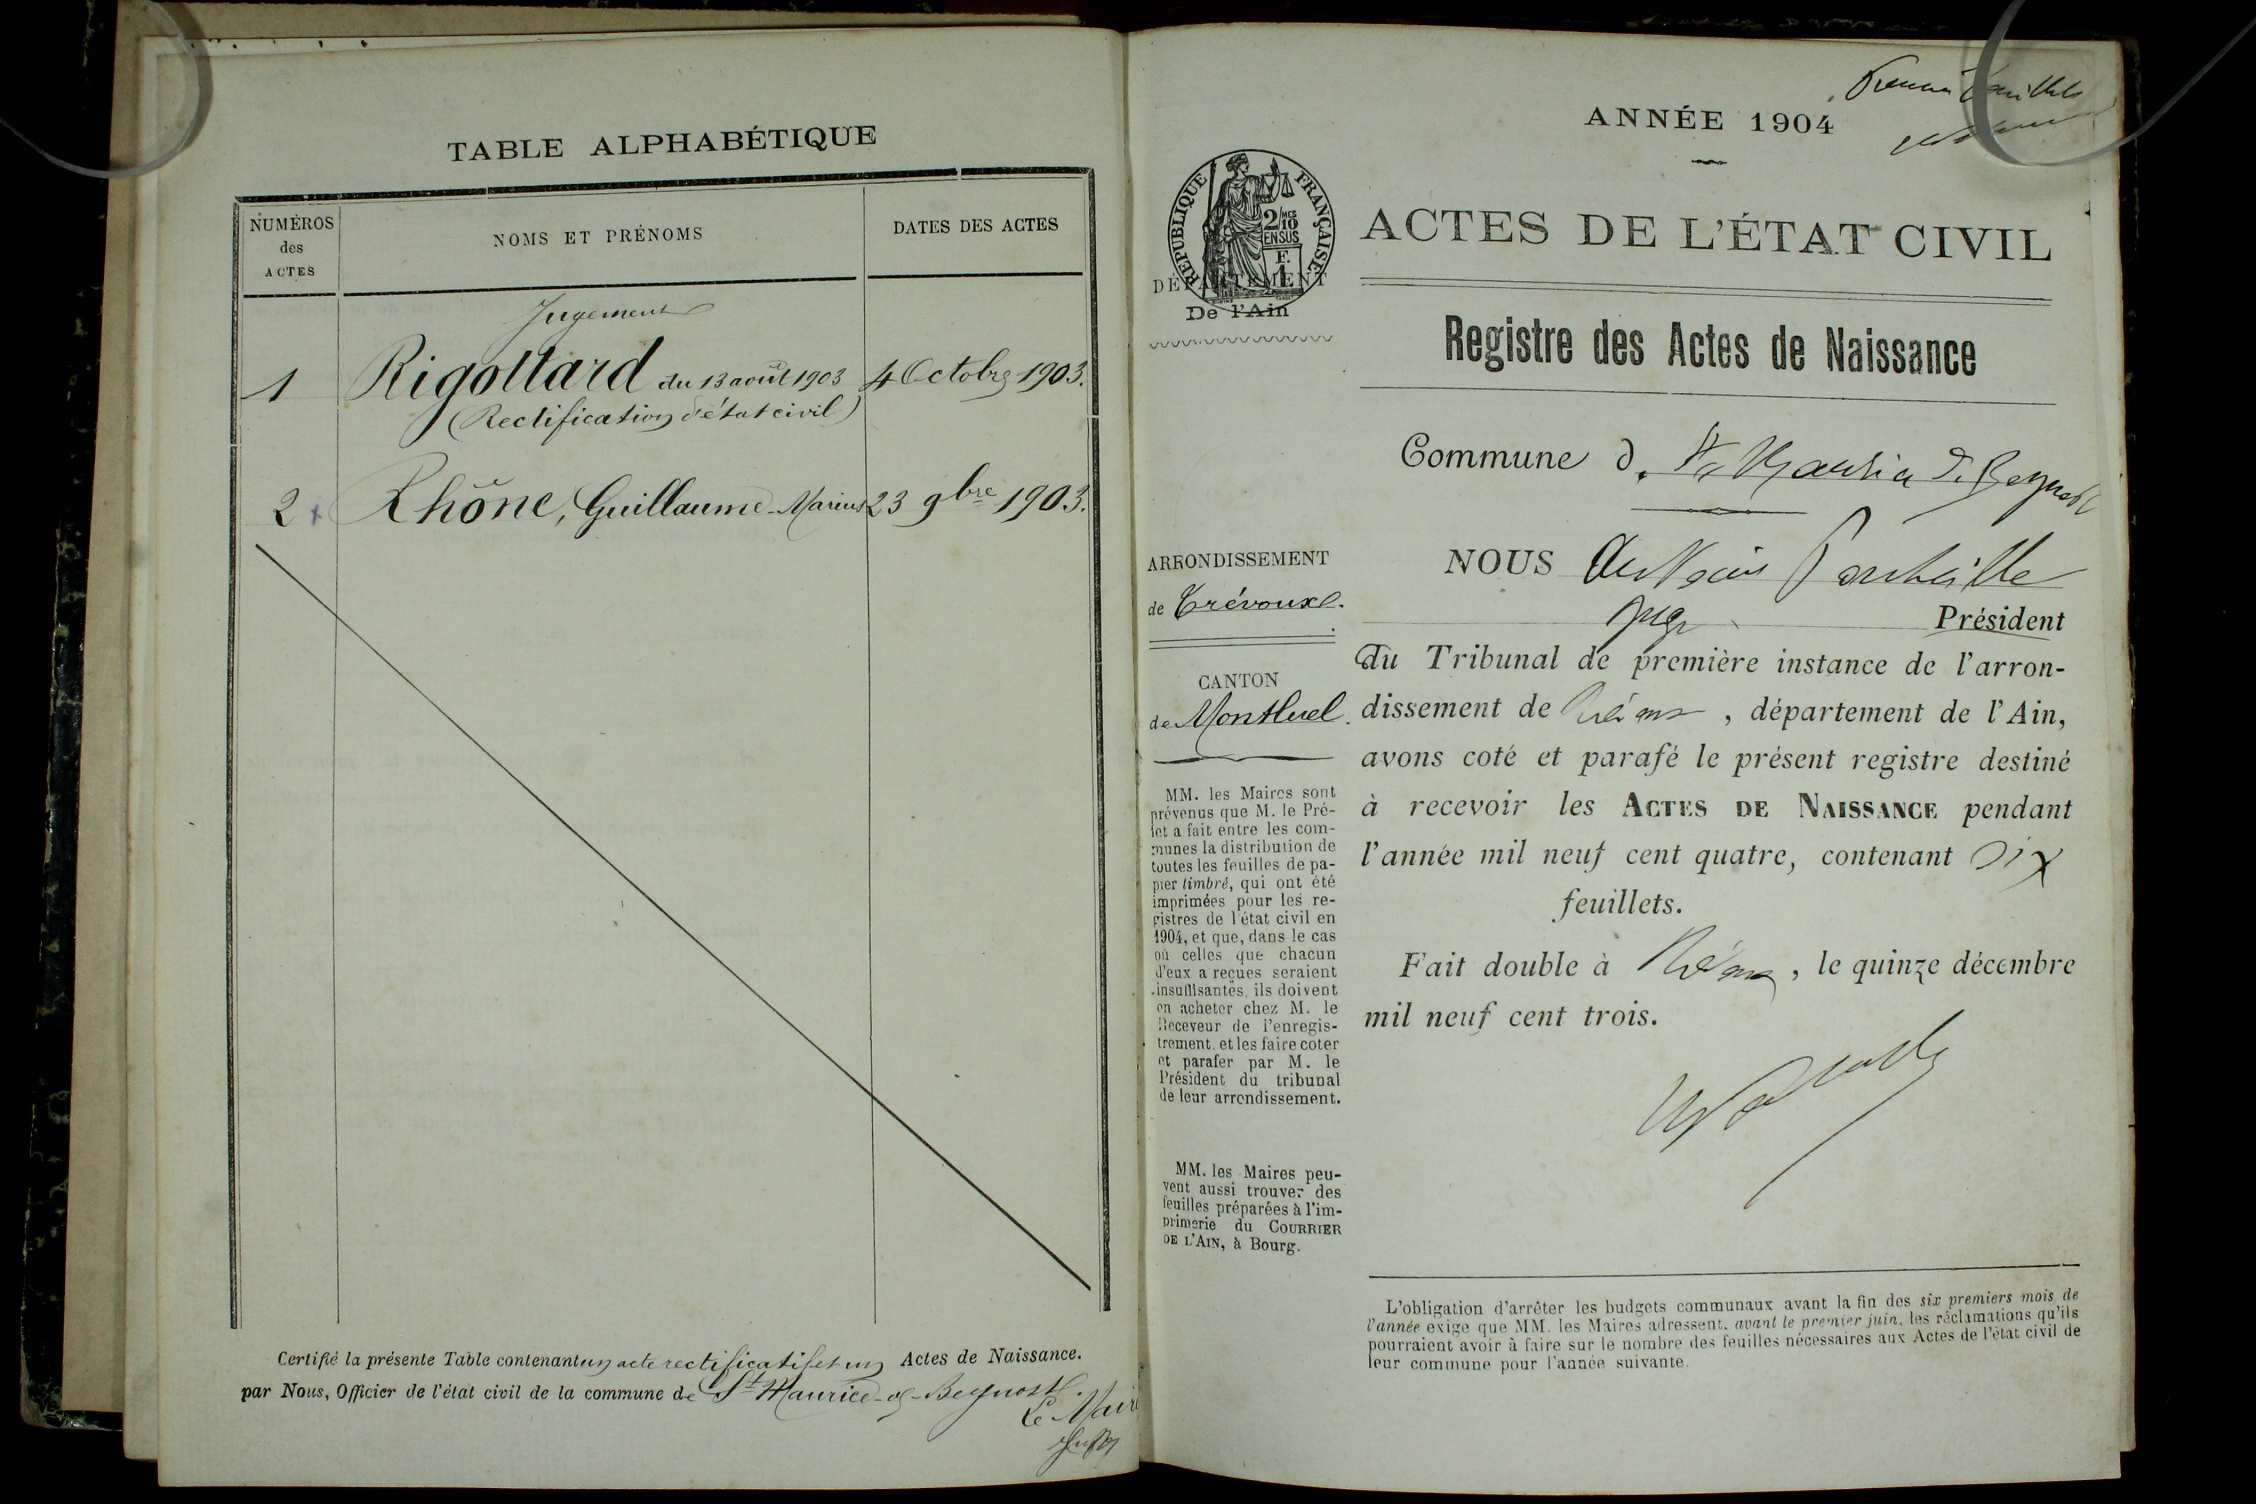 TABLE ALPHABÉTIQUE
NUMÉROS
des
ACTES
NOMS ET PRÉNOMS
DATES DES ACTES
Jugement
1 Rigottard du 13 août 1903 4 Octobre 1903.
(Rectification d'état civil)
2 Rhône, Guillaume-Marius 23 9bre 1903.
Certifié la présente Table contenant un acte rectificatif et un Actes de Naissance.
par Nous, Officier de l'état civil de la commune de St Maurice-de-Beynost.
Le Maire
ANNÉE 1904
RÉPUBLIQUE FRANÇAISE
2/10
MES
EN SUS
F.
1
DÉPARTEMENT
De l'Ain
ARRONDISSEMENT
de Trévoux.
CANTON
de Montluel.
MM. les Maires sont
prévenus que M. le Pré-
fet a fait entre les com-
munes la distribution de
toutes les feuilles de pa-
pier timbré, qui ont été
imprimées pour les re-
gistres de l'état civil en
1904, et que, dans le cas
où celles que chacun
d'eux a reçues seraient
insuffisantes, ils doivent
en acheter chez M. le
Receveur de l'enregis-
trement, et les faire coter
et parafer par M. le
Président du tribunal
de leur arrondissement.
MM. les Maires peu-
vent aussi trouver des
feuilles préparées à l'im-
primerie du COURRIER
DE L'AIN, à Bourg.
ACTES DE L'ÉTAT CIVIL
Registre des Actes de Naissance
Commune d. St Maurice de Beynost
NOUS
Juge Président
du Tribunal de première instance de l'arron-
dissement de Trévoux, département de l'Ain,
avons coté et parafé le présent registre destiné
à recevoir les ACTES DE NAISSANCE pendant
l'année mil neuf cent quatre, contenant
feuillets.
Fait double à Trévoux, le quinze décembre
mil neuf cent trois.
L'obligation d'arrêter les budgets communaux avant la fin des six premiers mois de
l'année exige que MM. les Maires adressent, avant le premier juin, les réclamations qu'ils
pourraient avoir à faire sur le nombre des feuilles nécessaires aux Actes de l'état civil de
leur commune pour l'année suivante.